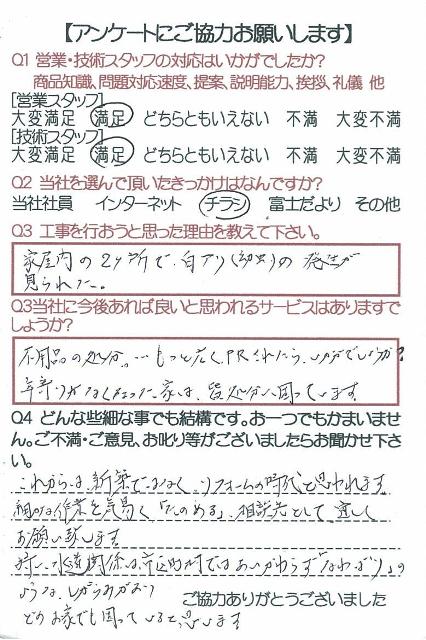 【アンケートにご協力お願いします】
Q1 営業・技術スタッフの対応はいかがでしたか?
商品知識、問題対応速度、提案、説明能力、挨拶、礼儀 他
[営業スタッフ]
大変満足 満足 どちらともいえない 不満 大変不満
[技術スタッフ]
大変満足 満足 どちらともいえない 不満 大変不満
Q2 当社を選んで頂いたきっかけはなんですか?
当社社員 インターネット チラシ 富士だより その他
Q3 工事を行おうと思った理由を教えて下さい。
家屋内の2ヶ所で、白アリ(幼虫)の発生が
見られた。
Q3当社に今後あれば良いと思われるサービスはありますで
しょうか?
不用品の処分。…もっと広くPRされたら、いかがでしょうか?
年寄りがなくなった家は、皆処分に困っています
Q4 どんな些細な事でも結構です。お一つでもかまいませ
ん。ご不満・ご意見、お叱り等がございましたらお聞かせ下さ
い。
これからは、新築ではなく、リフォームの時代と思われます
細かな作業を気易く「たのめる」相談先として、宜しく
お願い致します
特に、水道関係は、市区町村ではあいかわらず「なわばり」の
ような、しがらみがあり
ご協力ありがとうございました
どのお家でも困っていると思います